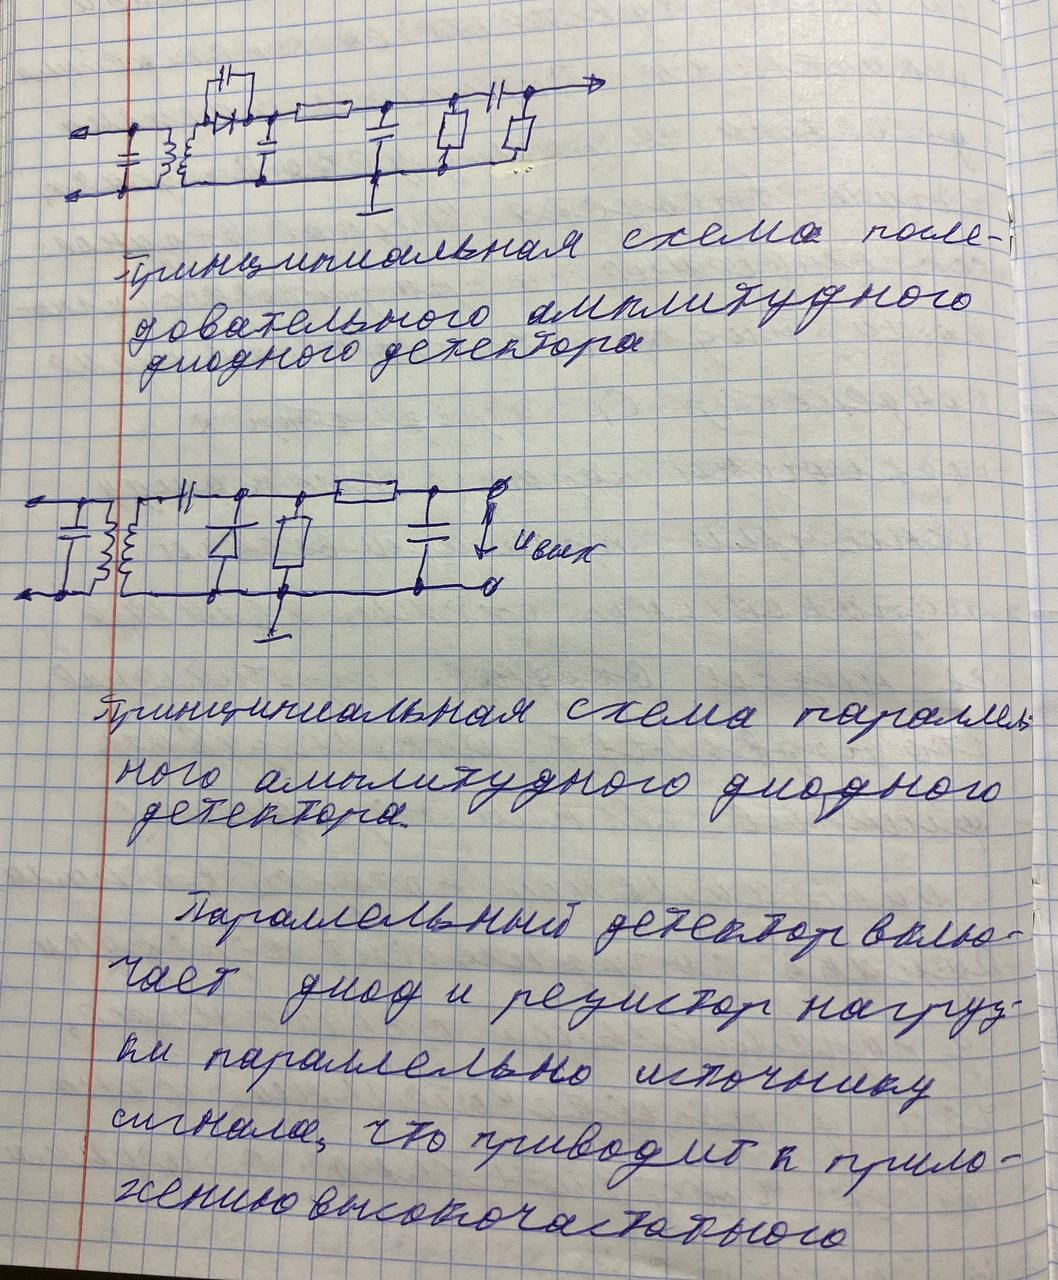 Принципиальная схема после-
довательного амплитудного
диодного детектора
uвых
Принципиальная схема параллель
ного амплитудного диодного
детектора.
Параллельный детектор вклю-
чает диод и резистор нагруз-
ки параллельно источнику
сигнала, что приводит к прило-
жению высокочастотного